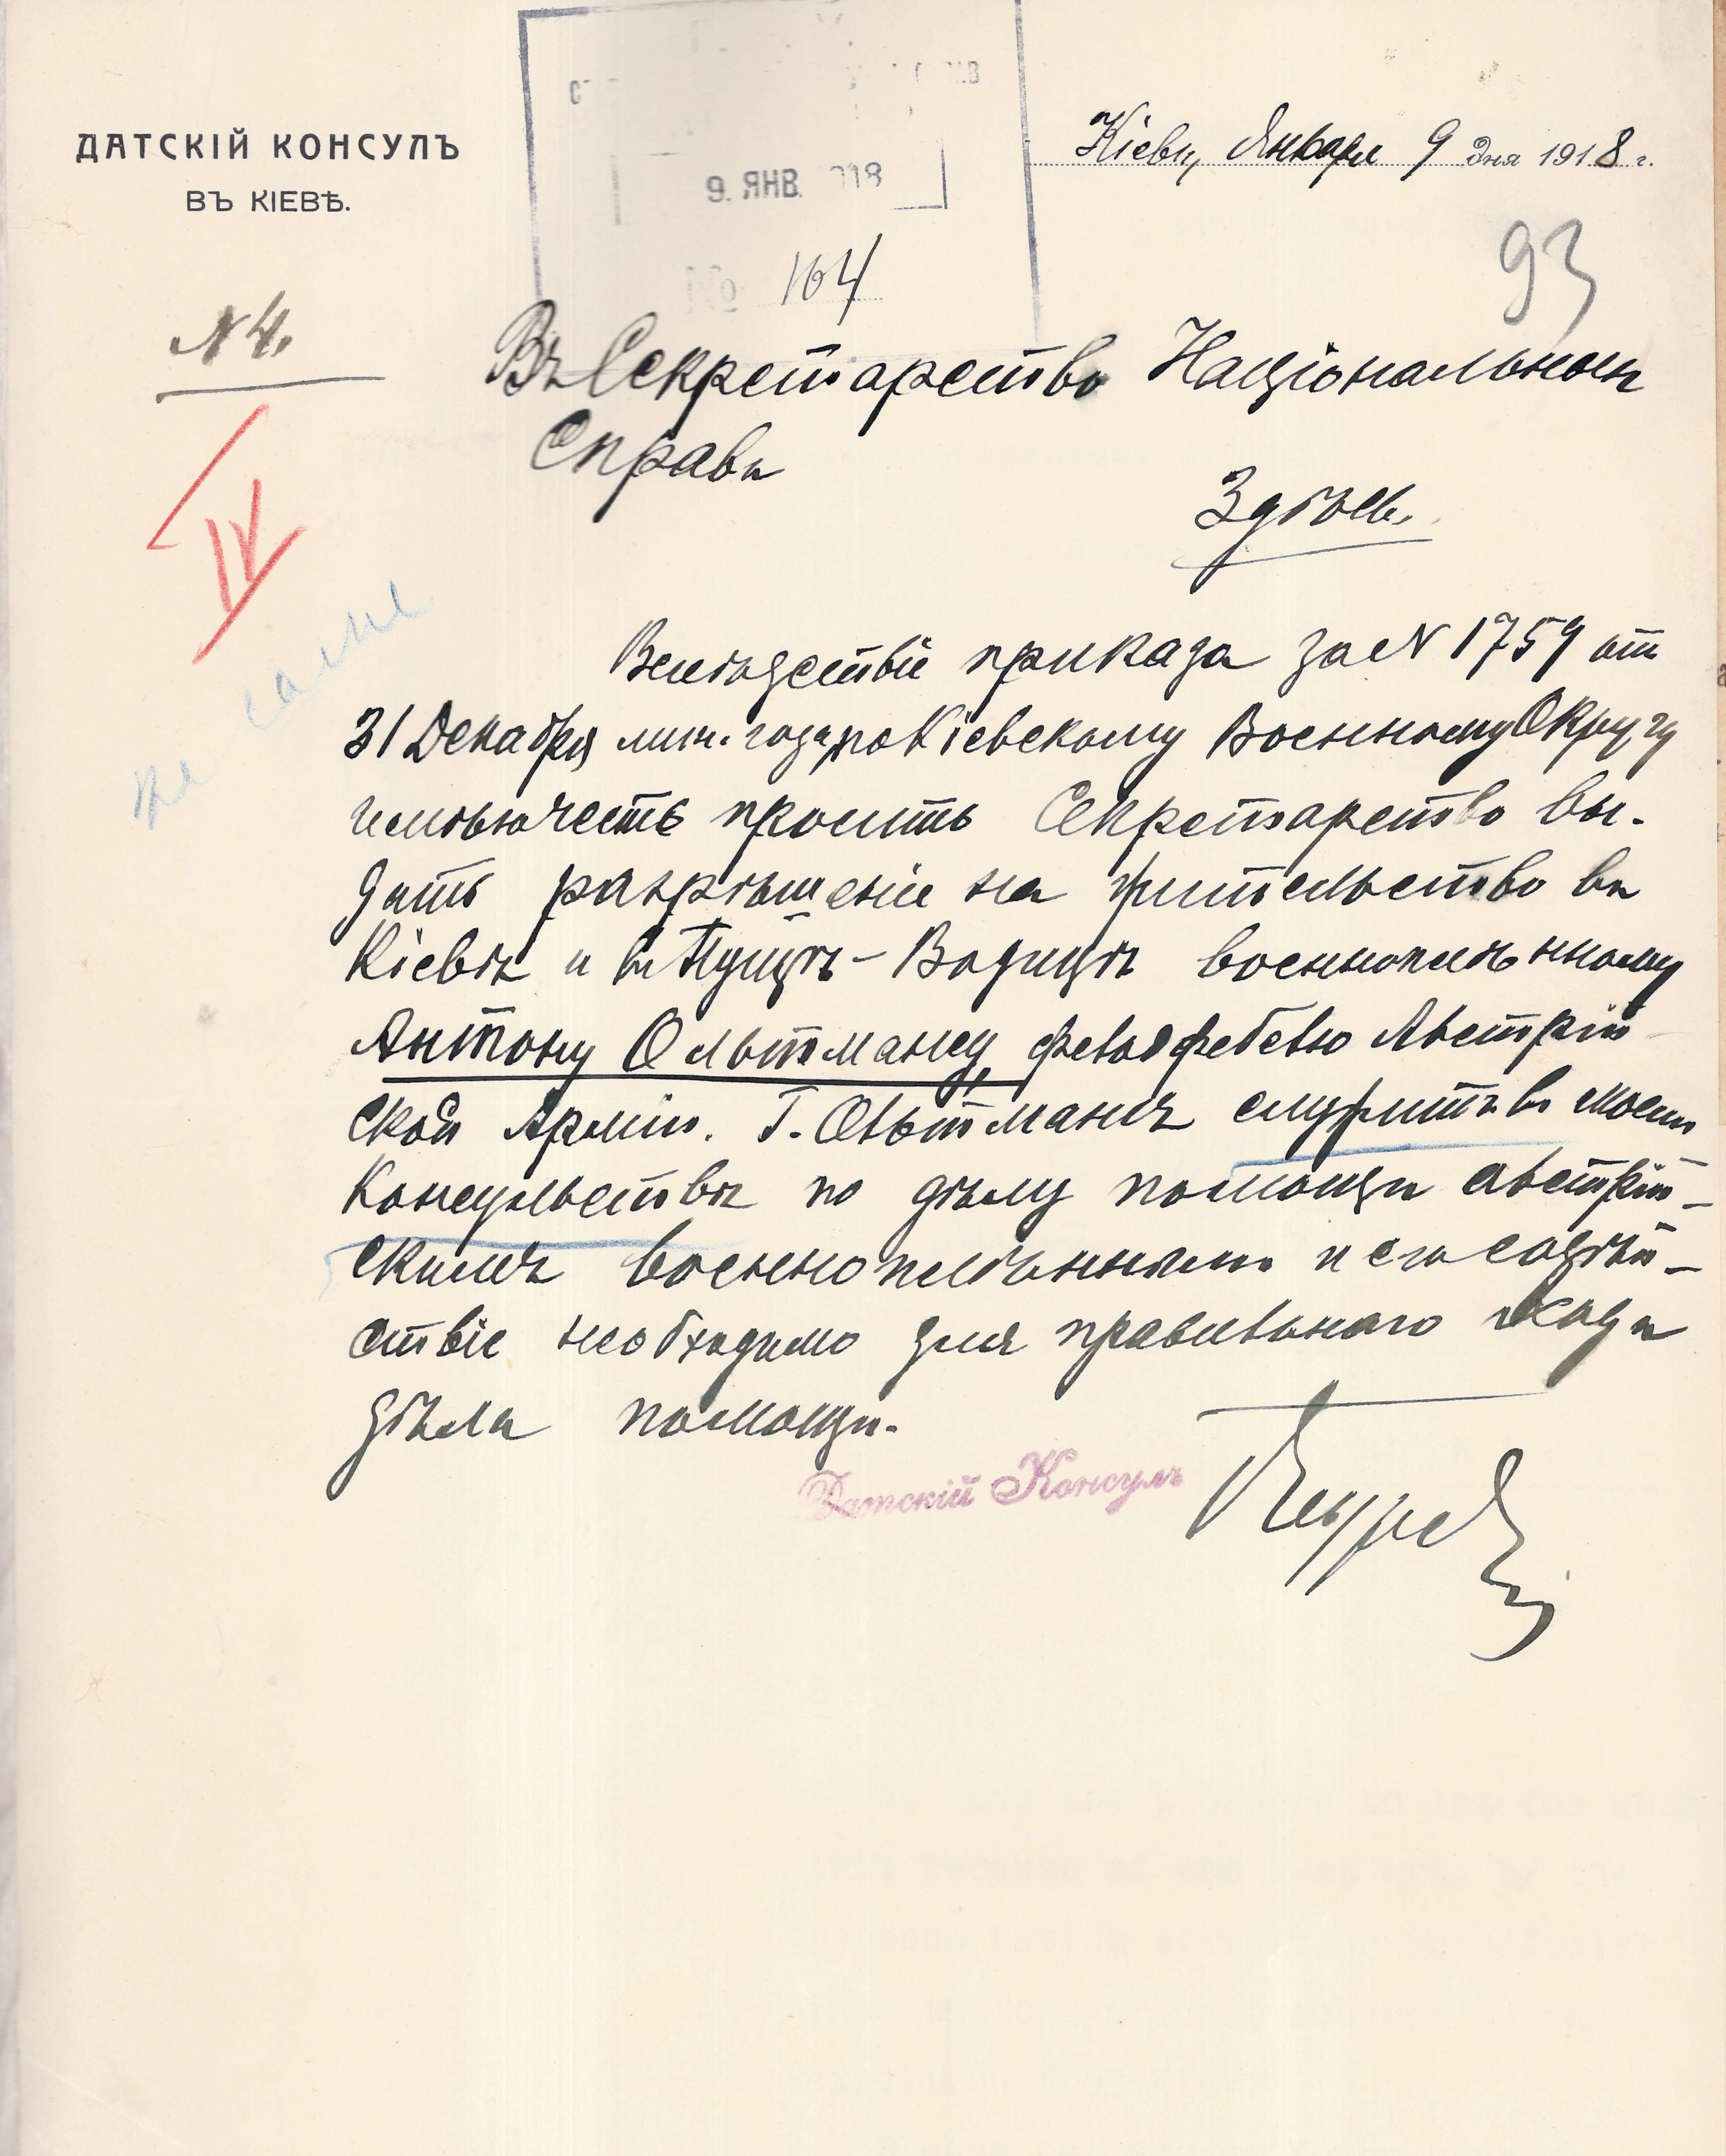 ДАТСКІЙ КОНСУЛЪ
ВЪ КІЕВѢ.
9. ЯНВ. 918
№ 104
Кіевъ, Января 9 дня 1918 г.
93
N 4.
Въ Секретарство Національныхъ
Справъ
Здѣсь.
IV
Вслѣдствіе приказа за N 1759 отъ
31 Декабря мин. года по Кіевскому Военному Округу
имѣю честь просить Секретарство вы-
дать разрѣшеніе на жительство въ
Кіевѣ и въ Пущѣ-Водицѣ военноплѣнному
Антону Ольтманцу, фельдфебелю Австрій-
ской Арміи. Г. Ольтманъ служитъ въ моемъ
Консульствѣ по дѣлу помощи австрій-
скимъ военноплѣннымъ и его содѣй-
ствіе необходимо для правильнаго хода
дѣла помощи.
Датскій Консулъ